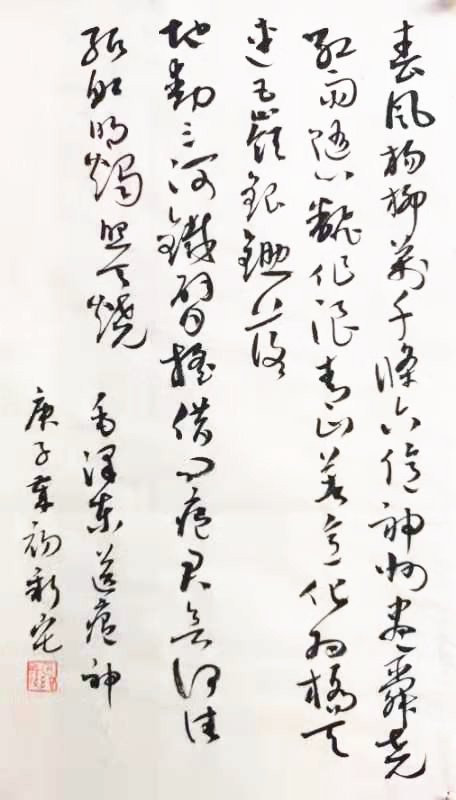 春風楊柳萬千條六億神州盡舜堯
紅雨隨心翻作浪青山着意化為橋天
連五嶺銀鋤落
地動三河鐵臂搖借问瘟君欲何往
紙船明燭照天燒
毛澤東送瘟神
庚子